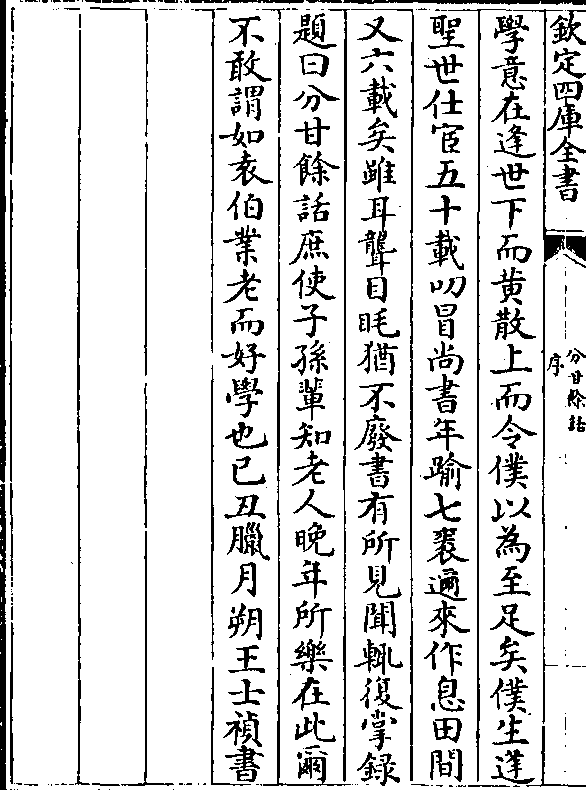 欽定四庫全書
分甘餘話
序
學意在逢世下而黄散上而令僕以為至足矣僕生逢
聖世仕宦五十載叨冒尚書年踰七袠邇來作息田間
又六載矣雖耳聾目眊猶不廢書有所見聞輒復掌錄
題曰分甘餘話庶使子孫輩知老人晚年所樂在此爾
不敢謂如袁伯業老而好學也己丑臘月朔王士禎書